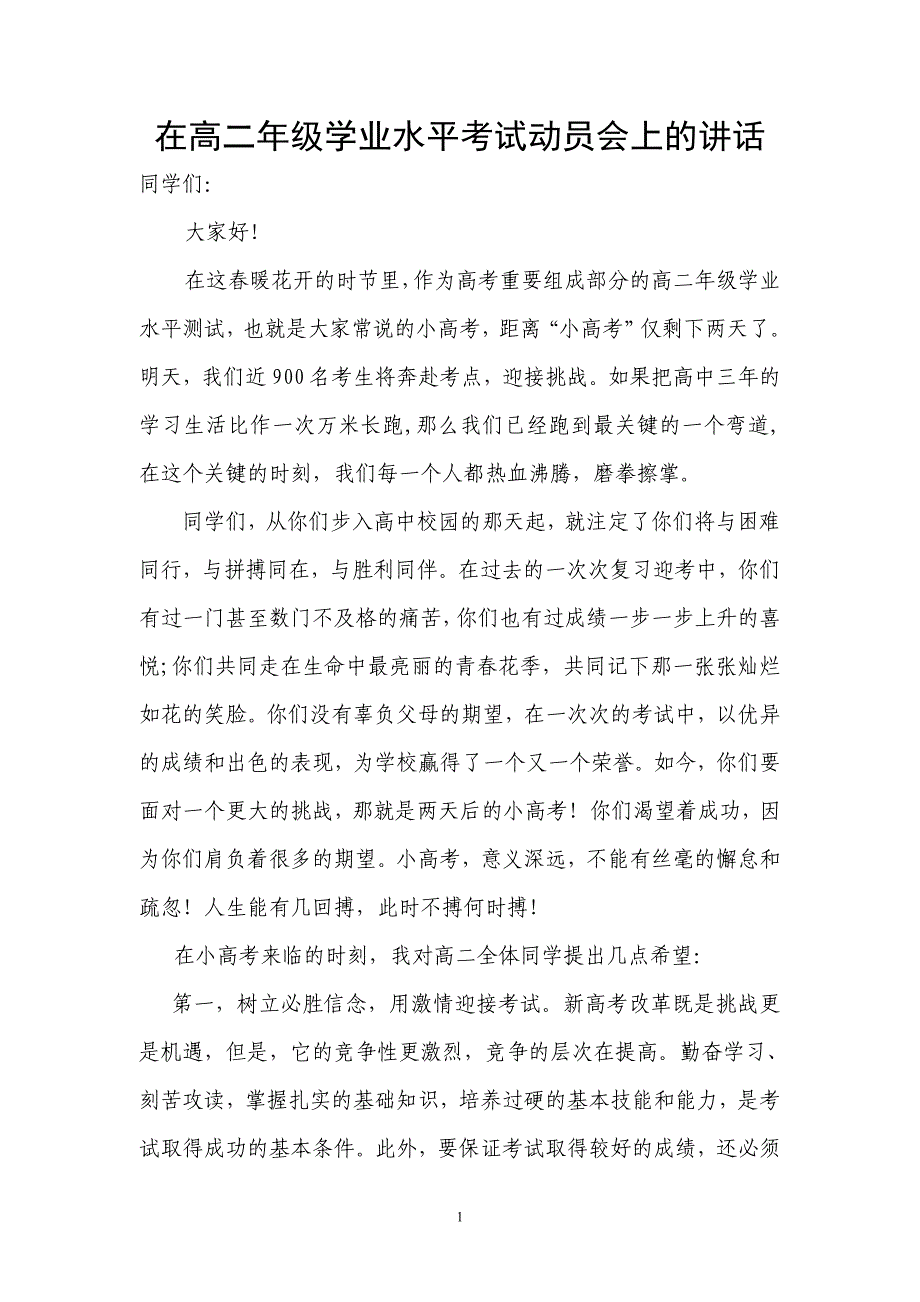 在高二年级学业水平考试动员会上的讲话
同学们：
大家好！
在这春暖花开的时节里，作为高考重要组成部分的高二年级学业
水平测试，也就是大家常说的小高考，距离“小高考”仅剩下两天了。
明天，我们近 900 名考生将奔赴考点，迎接挑战。如果把高中三年的
学习生活比作一次万米长跑,那么我们已经跑到最关键的一个弯道，
在这个关键的时刻，我们每一个人都热血沸腾，磨拳擦掌。
同学们，从你们步入高中校园的那天起，就注定了你们将与困难
同行，与拼搏同在，与胜利同伴。在过去的一次次复习迎考中，你们
有过一门甚至数门不及格的痛苦,你们也有过成绩一步一步上升的喜
悦;你们共同走在生命中最亮丽的青春花季，共同记下那一张张灿烂
如花的笑脸。你们没有辜负父母的期望，在一次次的考试中，以优异
的成绩和出色的表现，为学校赢得了一个又一个荣誉。如今，你们要
面对一个更大的挑战，那就是两天后的小高考！你们渴望着成功，因
为你们肩负着很多的期望。小高考，意义深远，不能有丝毫的懈怠和
疏忽！人生能有几回搏，此时不搏何时搏！
在小高考来临的时刻，我对高二全体同学提出几点希望：
第一，树立必胜信念，用激情迎接考试。新高考改革既是挑战更
是机遇，但是，它的竞争性更激烈，竞争的层次在提高。勤奋学习、
刻苦攻读，掌握扎实的基础知识，培养过硬的基本技能和能力，是考
试取得成功的基本条件。此外，要保证考试取得较好的成绩，还必须
1